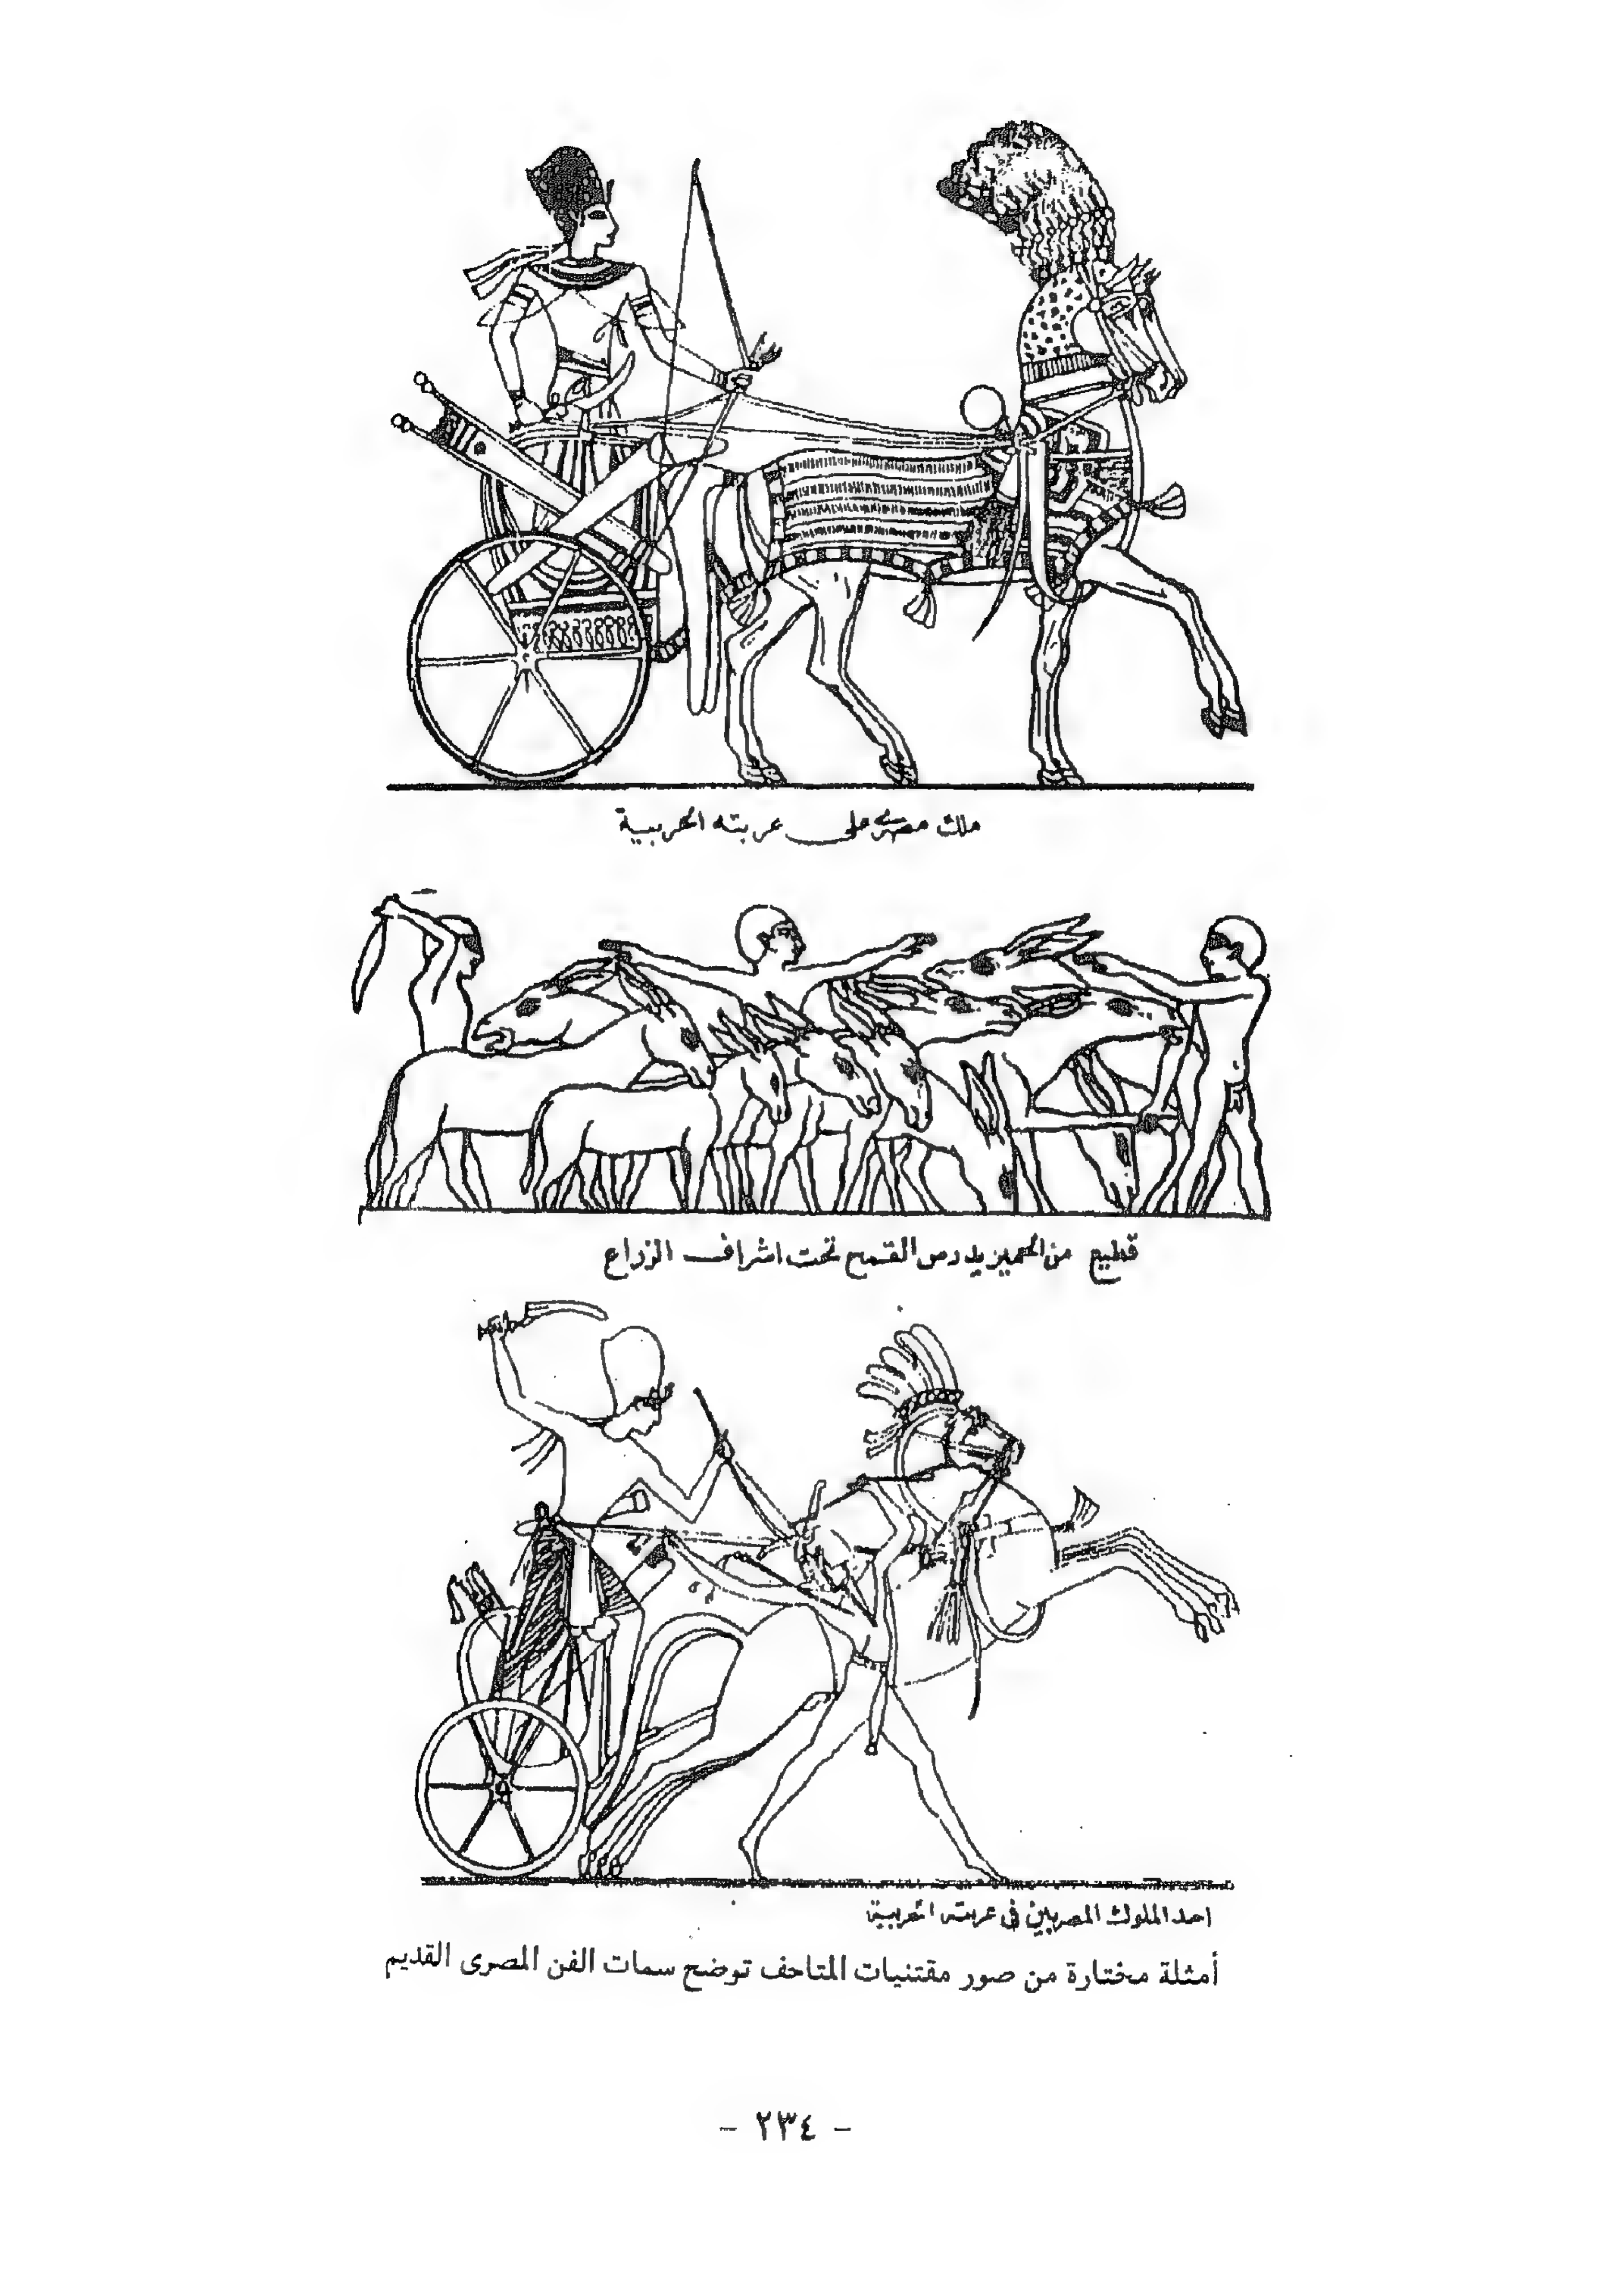 ملك مصرى على عربته الحربية
قطيع من الحمير يدرس القمح تحت اشراف الزراع
احد الملوك المصريين فى عربته الحربية
أمثلة مختارة من صور مقتنيات المتاحف توضح سمات الفن المصرى القديم
- ٢٣٤ -